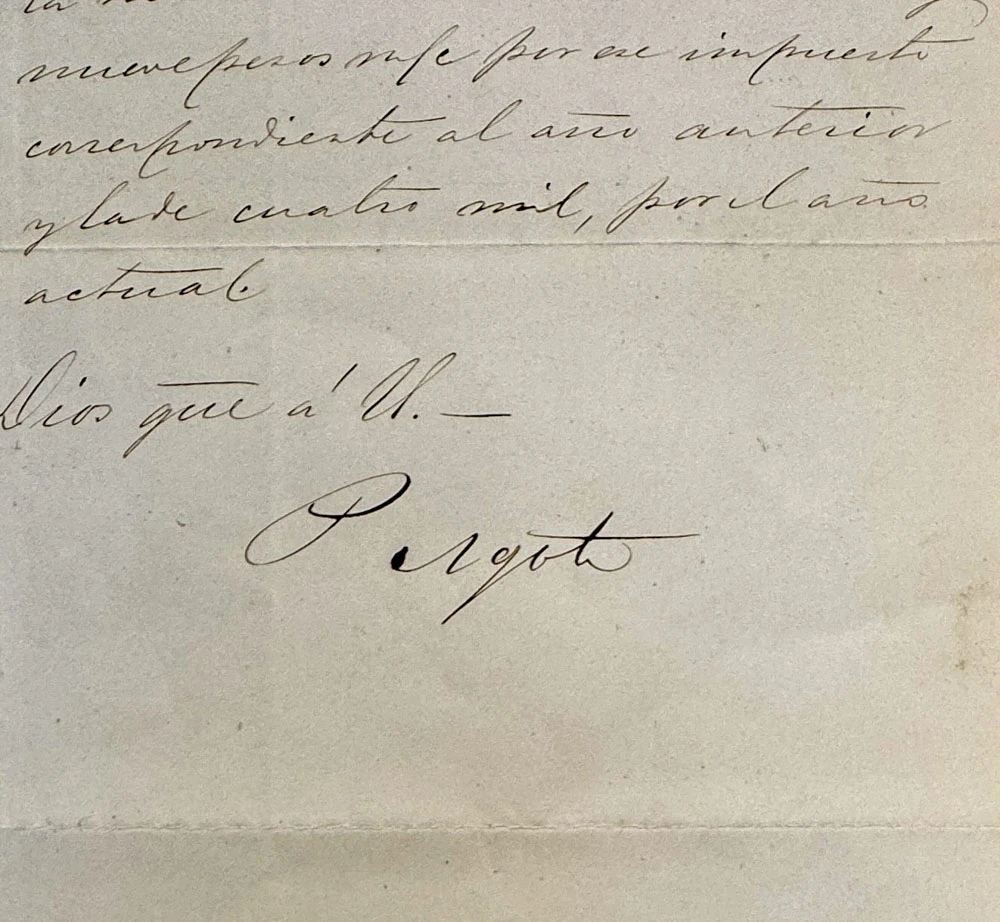 nueve pesos m/c por ese impuesto
correspondiente al año anterior
y la de cuatro mil, por el año
actual.
Dios gue á U. —
P Agote